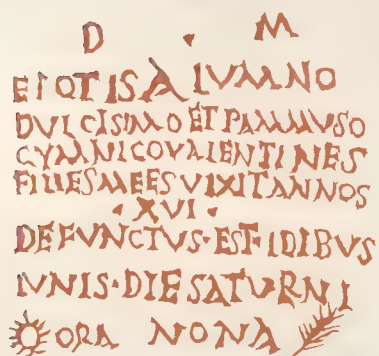 D · M
EIOTISALUMNO
DULCISIMOETPAMMUSO
GYMNICOVALENTINES
FILIESMEESVIXITANNOS
· XVI ·
DEFUNCTVS·EST·IDIBVS
IVNIS·DIESATVRNI
ORA NONA